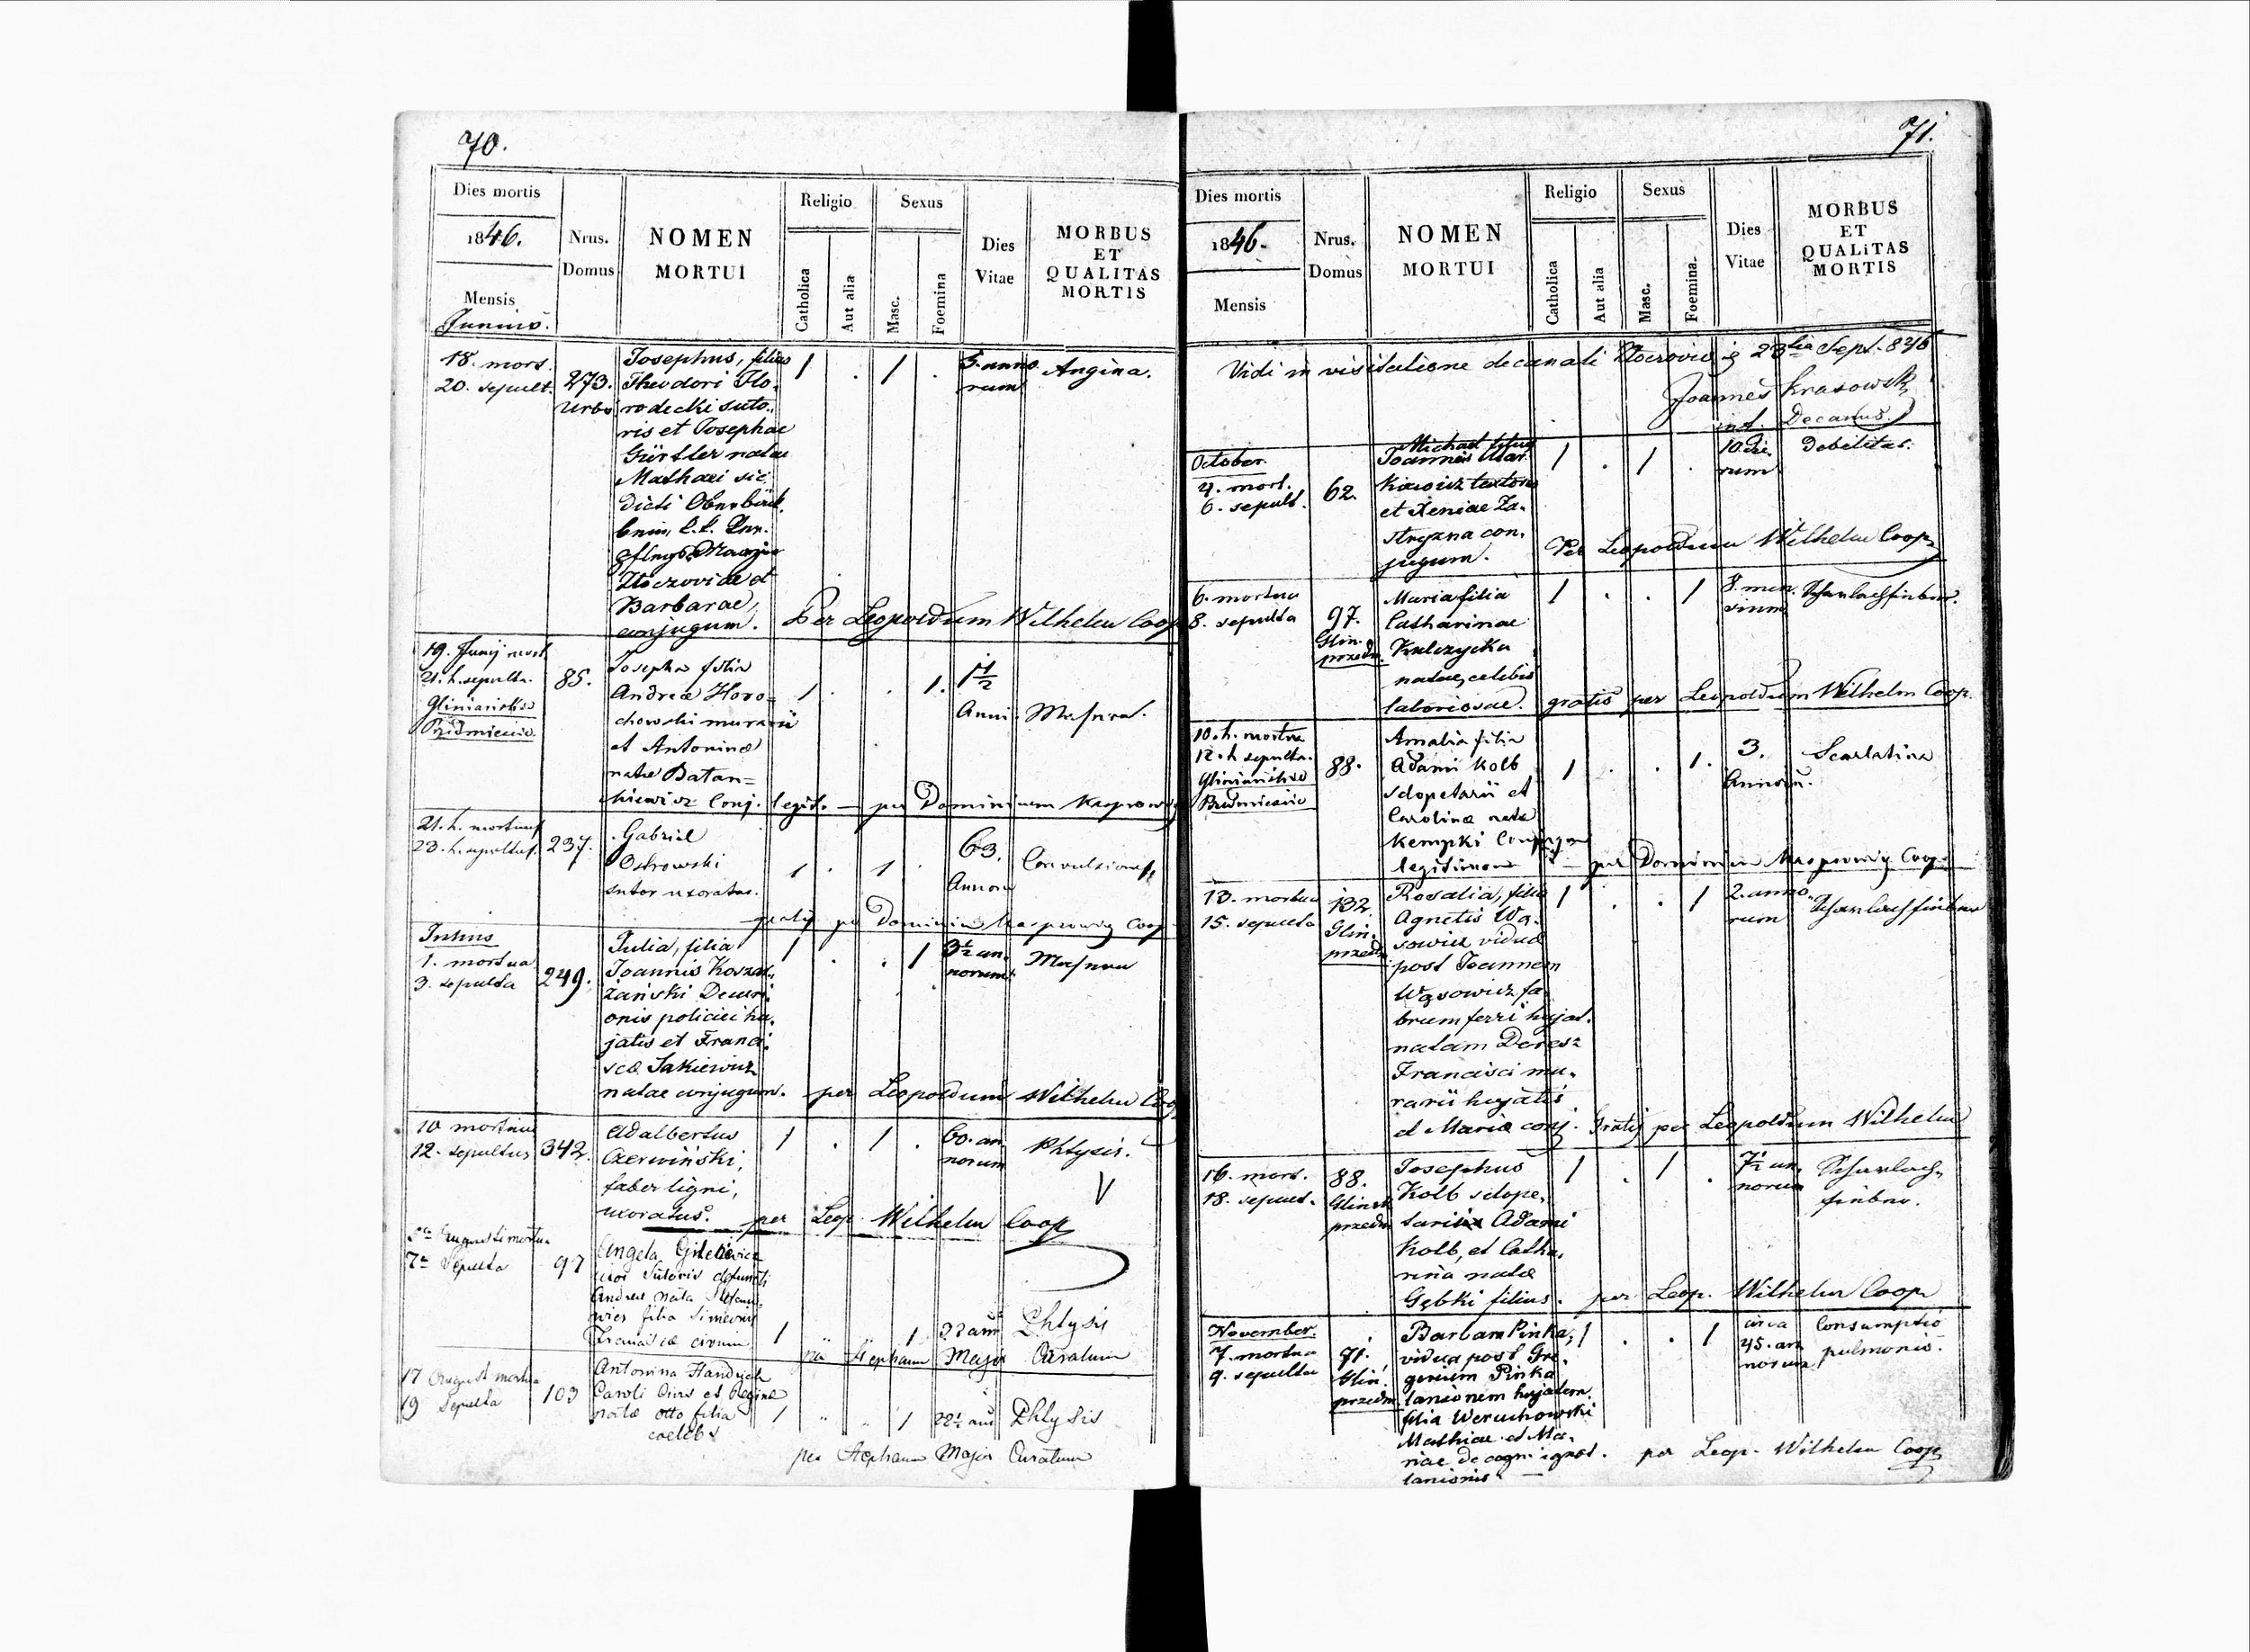 70.
Dies mortis
1846.
Mensis
Junius.
Nrus.
Domus
NOMEN
MORTUI
Religio
Catholica
Aut alia
Sexus
Masc.
Foemina
Dies
Vitae
MORBUS
ET
QUALITAS
MORTIS
18. mort.
20. sepult.
273.
Urbs
Josephus, filius
Theodori
rodecki suto-
ris et Josephae
Gürtler natae
Mathaei sic
dicti
Złoczoviae et
Barbarae,
conjugum.
1 . 1 .
5. anno
rum
Angina.
Per Leopoldum Wilhelm Coop
19. Junij mort.
21. h. sepulta.
Glinianskie
Przedmiescie.
85.
Josepha filia
Andreae Horo=
chowski murarii
et Antoninae
natae Batan=
kiewicz Conj. legit. — per Dominicum
1 . . 1.
1 1/2
Anni.
21. h. mortuus
23. h. sepultus.
237.
Gabriel
Ostrowski
sutor uxoratus.
1 . 1 .
63.
Annorum
Convulsiones
gratis per Dominicum Coop
Julius
1. mortua
3. sepulta
249.
Julia, filia
Joannis
żański Decuri-
onis policiei hu-
jatis et Franci-
scae Sakiewicz
natae conjugum.
1 . . 1
3 1/2 an.
norum.
per Leopoldum Wilhelm Coop
10 mortuus
12. sepultus
342.
Adalbertus
Czerwiński,
faber ligni,
uxoratus.
1 . 1 .
60. an.
norum
Phtysis.
per Leop. Wilhelm Coop
5ta Augusti mortua
7ma Sepulta
97
Angela
uxor Sutoris defuncti
Andreae nata
wicz filia Simeonis
Franciscae civium
1 " " 1
22 ann
Phtysis
per Stephanum Major Curatum
17 August mortua
19 Sepulta
103
Antonina Handuch
Caroli Civis et Reginae
natae Otto filia
coelebs
1 " " 1
22 1/2 ann
Phtysis
per Stephanum Major Curatum
71.
Dies mortis
1846.
Mensis
Nrus.
Domus
NOMEN
MORTUI
Religio
Catholica
Aut alia
Sexus
Masc.
Foemina.
Dies
Vitae
MORBUS
ET
QUALiTAS
MORTIS
Vidi in visitatione decanali Sept. 846
Joannes Krasowski
Decanus.
October.
4. mort.
6. sepult.
62.
Michael filius
Joannis Mar-
kowicz textoris
et Xeniae Za-
stryzna con-
jugum.
1 . 1 .
10. die-
rum
Debilitas.
Per Leopoldum Wilhelm Coop
6. mortua
8. sepulta
97.
Glin.
przedm.
Maria filia
Catharinae
Kulczycka
natae, celibis
laboriosae.
1 . . 1
8. men-
sium
Scharlachfieber.
gratis per Leopoldum Wilhelm Coop.
10. h. mortua
12. h sepulta.
Glinianskie
Przedmiescie
88.
Amalia filia
Adami Kolb
sclopetarii et
Carolinae natae
Kempki Conjugum
legitimorum — per Dominicum Coop.
1 . . 1.
3.
Annorum.
Scarlatina
13. mortua
15. sepulta
132.
Glin.
przedm.
Rosalia, filia
Agnetis Wą-
sowicz viduae
post Joannem
Wąsowicz fa-
brum ferri hujat.
natam Doresz
Francisci mu-
rarii hujatis
et Mariae conj. Gratis per Leopoldum Wilhelm
1 . . 1
2. anno-
rum
Scharlachfieber
16. mort.
18. sepult.
88.
Glinsk
przedm
Josephus
Kolb sclope-
tarii Adami
Kolb, et Catha-
rina natae
Gębki filius.
1 . 1 .
7 1/2 an.
norum
Scharlach-
fieber.
per Leop. Wilhelm Coop
November.
7. mortua
9. sepulta
71.
Glin.
przedm
Barbara Pinka,
vidua post Gre-
gorium Pinka
lanionem hujatem.
filia Weruchowski
Mathiae et Ma-
riae de cogn. ignot.
lanionis —
1 . . 1
circa
45. an
norum
Consumptio
pulmonis.
per Leop. Wilhelm Coop